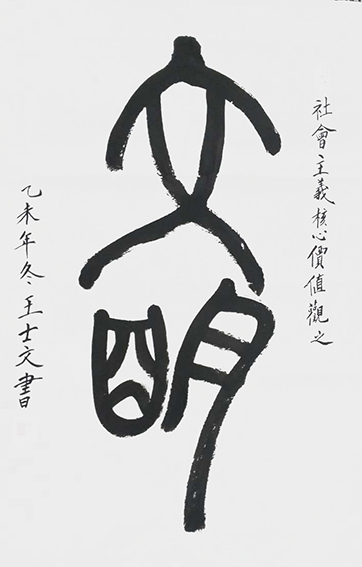 社會主義核心價值觀之
文明
乙未年冬王士文書